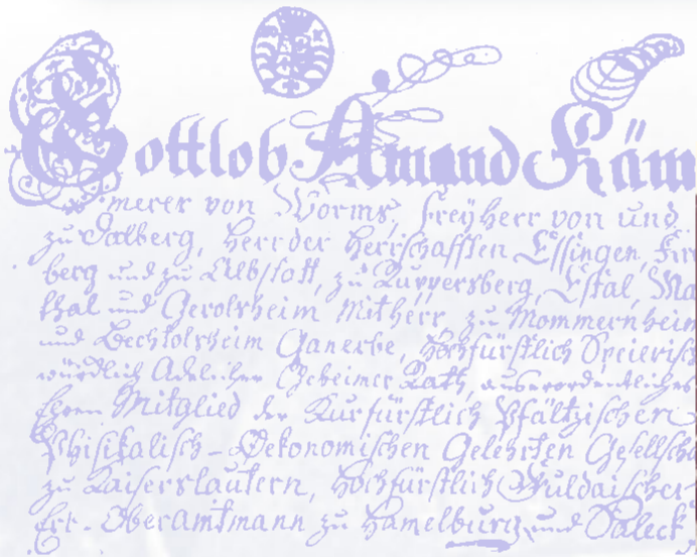 Gottlob Amand Käm
merer von Worms, Freyherr von und
zu Dalberg, Herr der Herrschafften Essingen, Kro
berg und zu Ruppersberg, Estal, Ma
thal und Gerolsheim Mitherr, zu Mommernheim
und Bechtolsheim Ganerbe, Hochfürstlich Speierisch
würdlich Adelicher Geheimer Rath, auserordentlicher
Ehren Mitglied der Kurfürstlich Pfältzischen
Phisikalisch-Oekonomischen Gelehrten Gesellscha
zu Kaiserslautern, Hochfürstlich Fuldaischer
Erb-Oberamtmann zu Hamelburg und Saleck